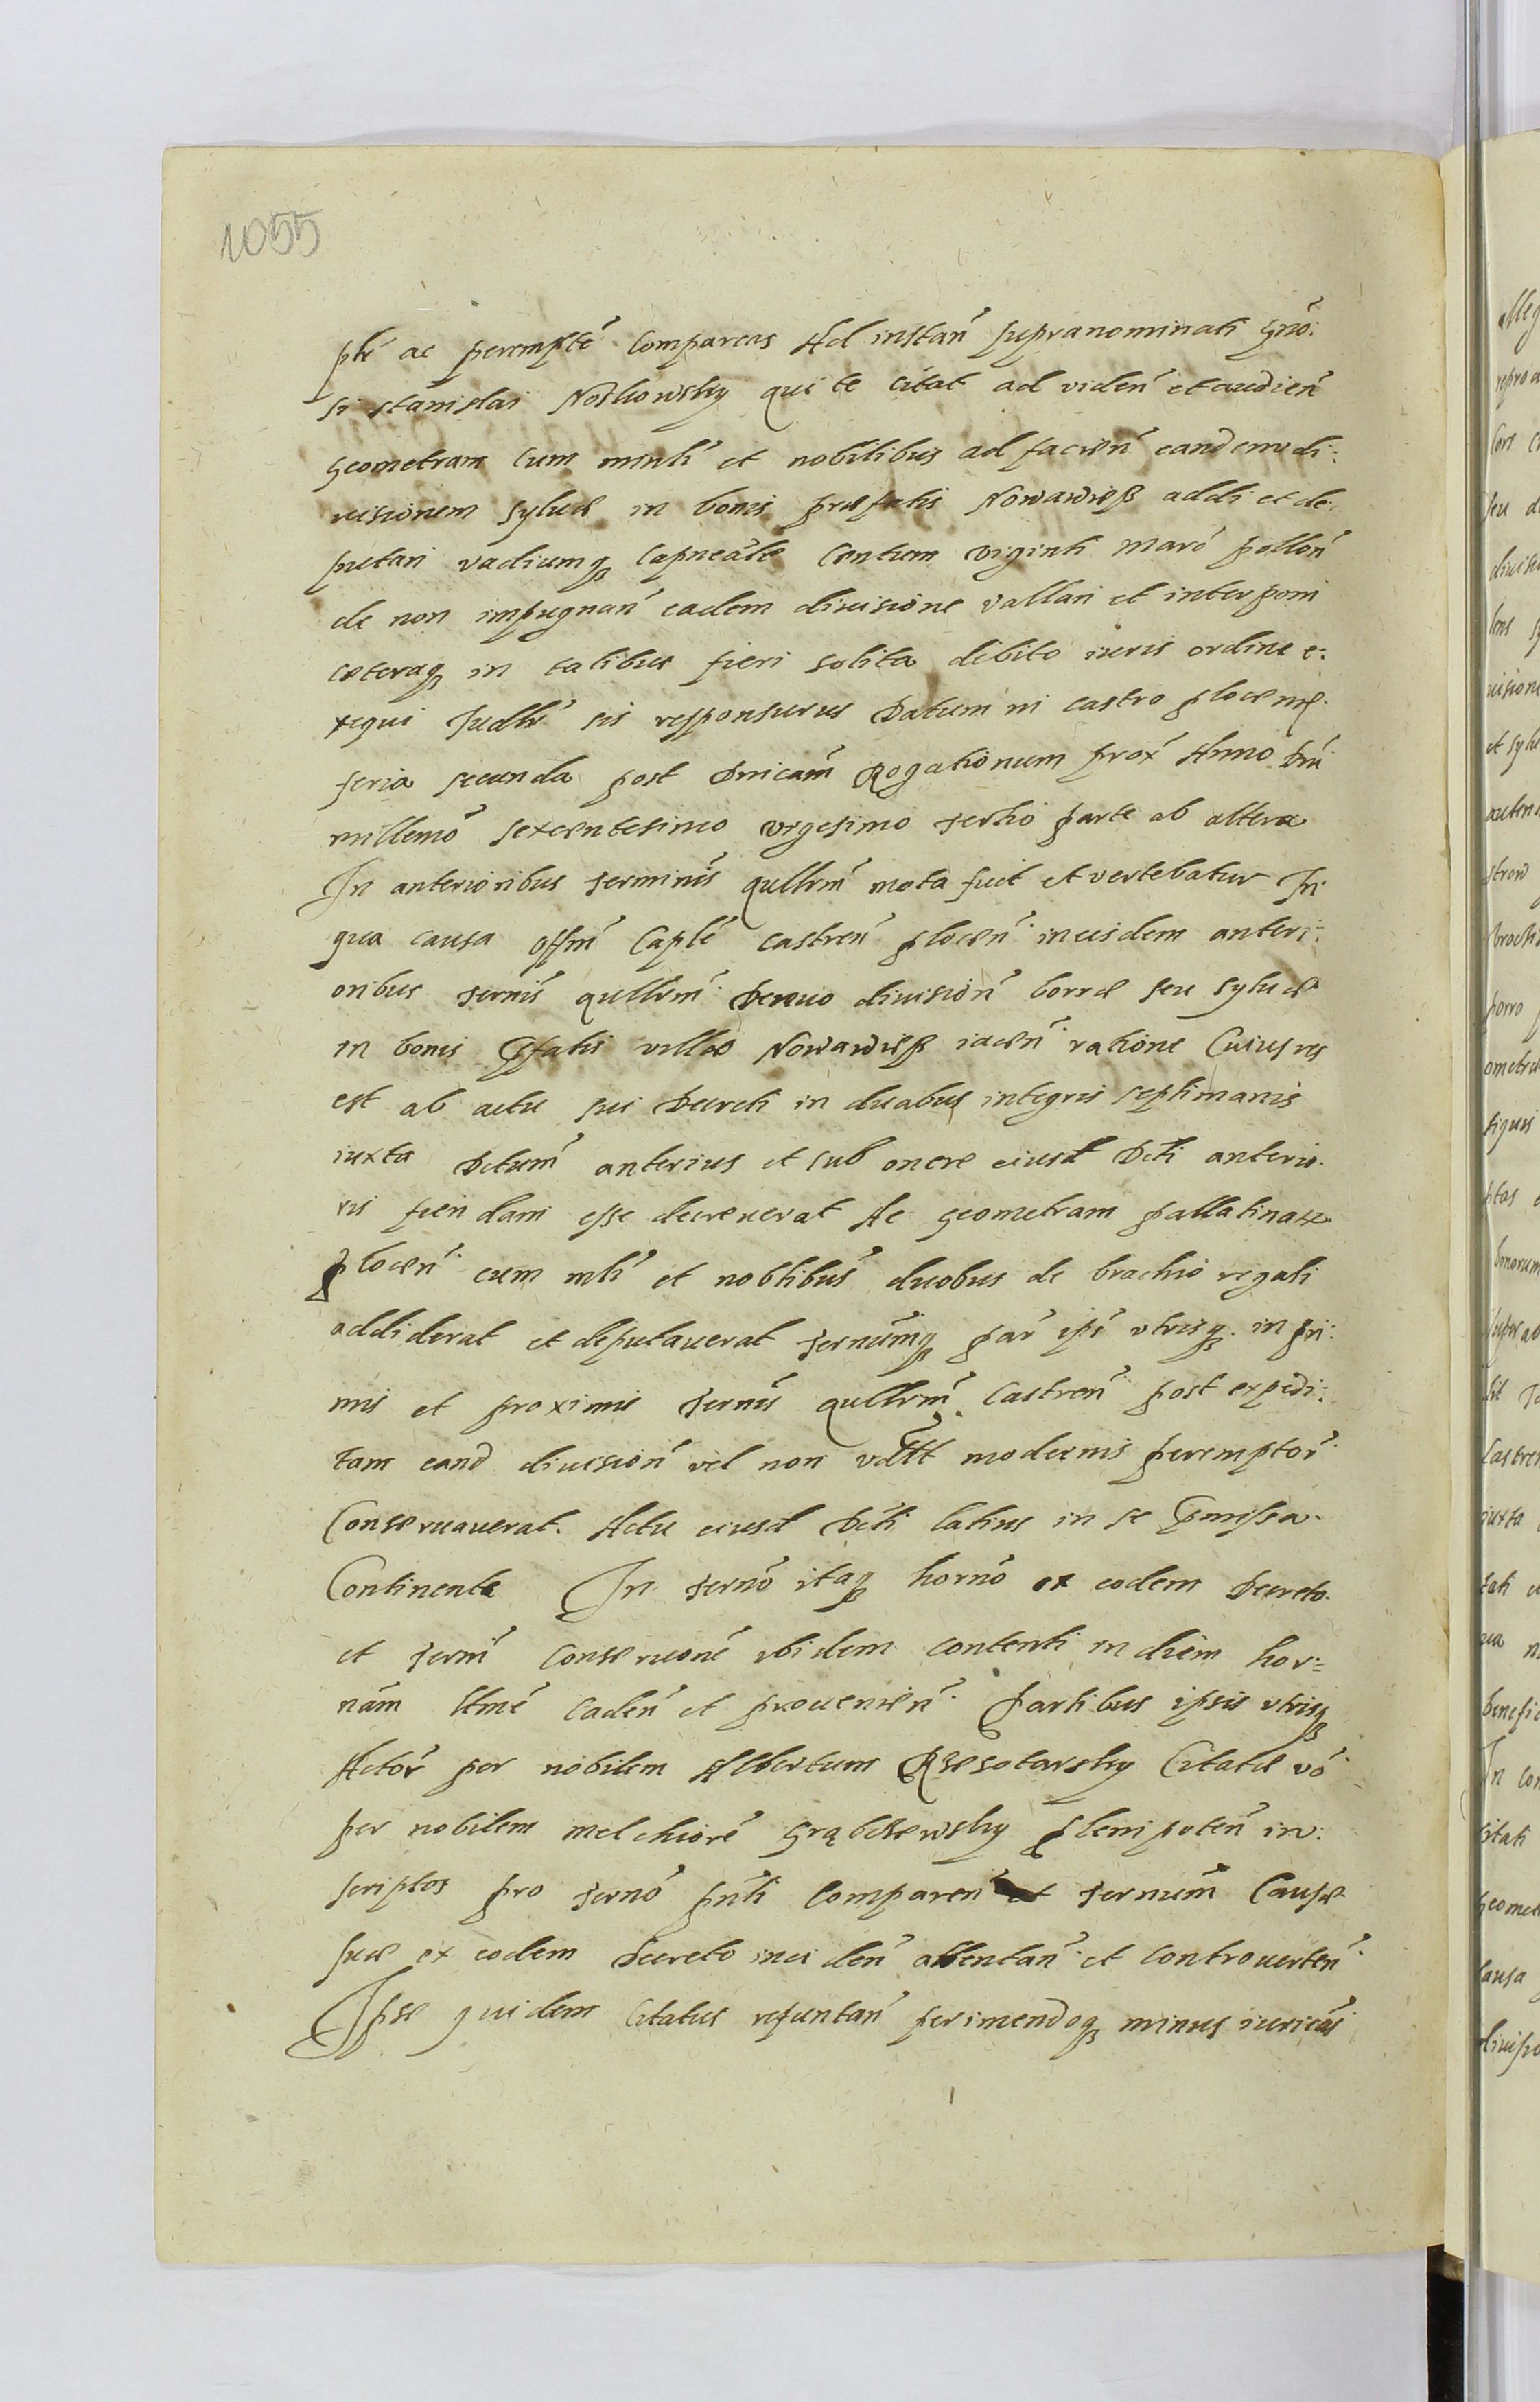 1055
ptē ac peremptē compareas Ad instan̄ supranominati gn̄o:
si stanislai Noskowsky qui te citat ad viden̄ et audien̄
geometram cum minl̄i et nobilibus ad facien̄ eandem di:
uisionem syluæ in bonis præfatis Nowawieß addi et de:
putari vadiumq₃ capneāle Centum viginti marc̄ pollon̄
de non impugnan̄ eadem diuisione vallari et interponi
cæteraq₃ in talibus fieri solita debito iuris ordine e:
xequi Judlr̄ sis responsurus Datum in castro plocen̄
feria secunda post Dnicam̄ Rogationum prox̄ Anno Dn̄i
millemō sexcentesimo vigesimo tertio parte ab altera
In anterioribus terminis qullrm̄ mota fuit et vertebatur In
qua causa offm̄ Caplē castren̄ plocen̄ in eisdem anteri:
oribus termīs qullrm̄ Denuo diuision̄ borræ seu syluæ
in bonis pfatis villæ Nowawieß iacen̄ ratione Cuius res
est ab actu sui Decreti in duabus integris septimanis
iuxta Dctum̄ anterius et sub onere eiusd Dcti anterio:
ris fiendam esse decreuerat Ac geometram pallatinatꝫ
plocen̄ cum ml̄i et noblibus̄ duobus de brachio regali
addiderat et deputauerat termūmq₃ par̄ ips̄ vtrisq₃ in pri:
mis et proximis termīs qullrm̄ Castren̄ post expedi:
tam eand diuision̄ vel non vdtt modernis peremptor̄
Conseruauerat. Actu eiusd Dcti latius in se pmissa
Continente In termō itaq₃ hornō ex eodem Decreto
et term̄ conseruon̄e ibidem contenti in diem hor:
nām ltmē caden̄ et prouenien̄ Partibus ipsis vtrisq₃
Actor̄ per nobilem Albertum Rzeszotarsky Citatæ vō
per nobilem melchior̄e Grąbczewsky plenipoten̄ in:
scriptos pro termō pn̄ti comparen̄ et termum̄ Causæ
suæ ex eodem Decreto inciden̄ attentan̄ et controuerten̄
Ipse quidem Citatus refuntan̄ perimendoq₃ minus iuricas̄